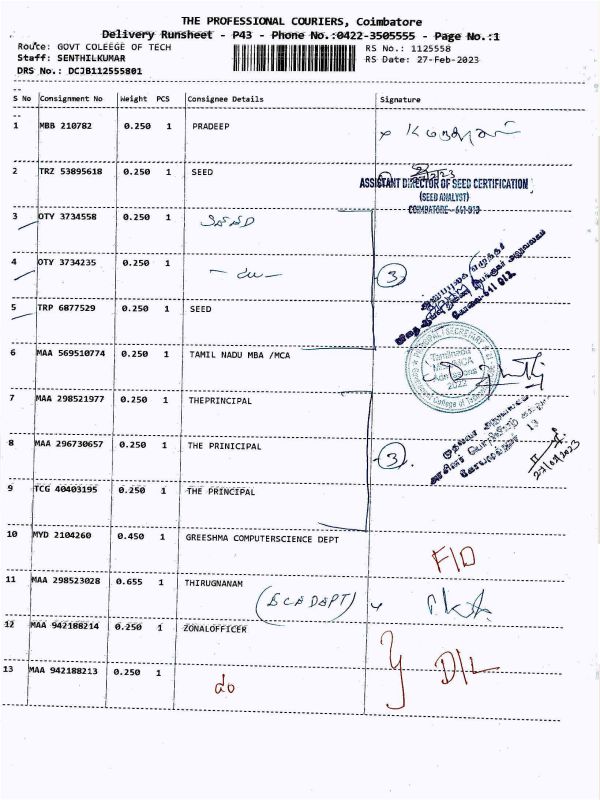 THE PROFESSIONAL COURIERS, Coimbatore
Delivery Runsheet - P43 - Phone No.:0422-3505555 - Page No.:1
Route: GOVT COLEEGE OF TECH
RS No.: 1125558
Staff: SENTHILKUMAR
RS Date: 27-Feb-2023
DRS No.: DCJB112555801
S No Consignment No Weight PCS Consignee Details Signature
1 MBB 210782 0.250 1 PRADEEP
2 TRZ 53895618 0.250 1 SEED
ASSISTANT DIRECTOR OF SEED CERTIFICATION
(SEED ANALYST)
COIMBATORE - 641 013
3 OTY 3734558 0.250 1
4 OTY 3734235 0.250 1
3
5 TRP 6877529 0.250 1 SEED
6 MAA 569510774 0.250 1 TAMIL NADU MBA /MCA
Tamilnadu
MBA/MCA
Admissions
2022
7 MAA 298521977 0.250 1 THEPRINCIPAL
8 MAA 296730657 0.250 1 THE PRINICIPAL
3
27/02/2023
9 TCG 40403195 0.250 1 THE PRINCIPAL
10 MYD 2104260 0.450 1 GREESHMA COMPUTERSCIENCE DEPT
F/D
11 MAA 298523028 0.655 1 THIRUGNANAM
12 MAA 942188214 0.250 1 ZONALOFFICER
D/L
13 MAA 942188213 0.250 1
do